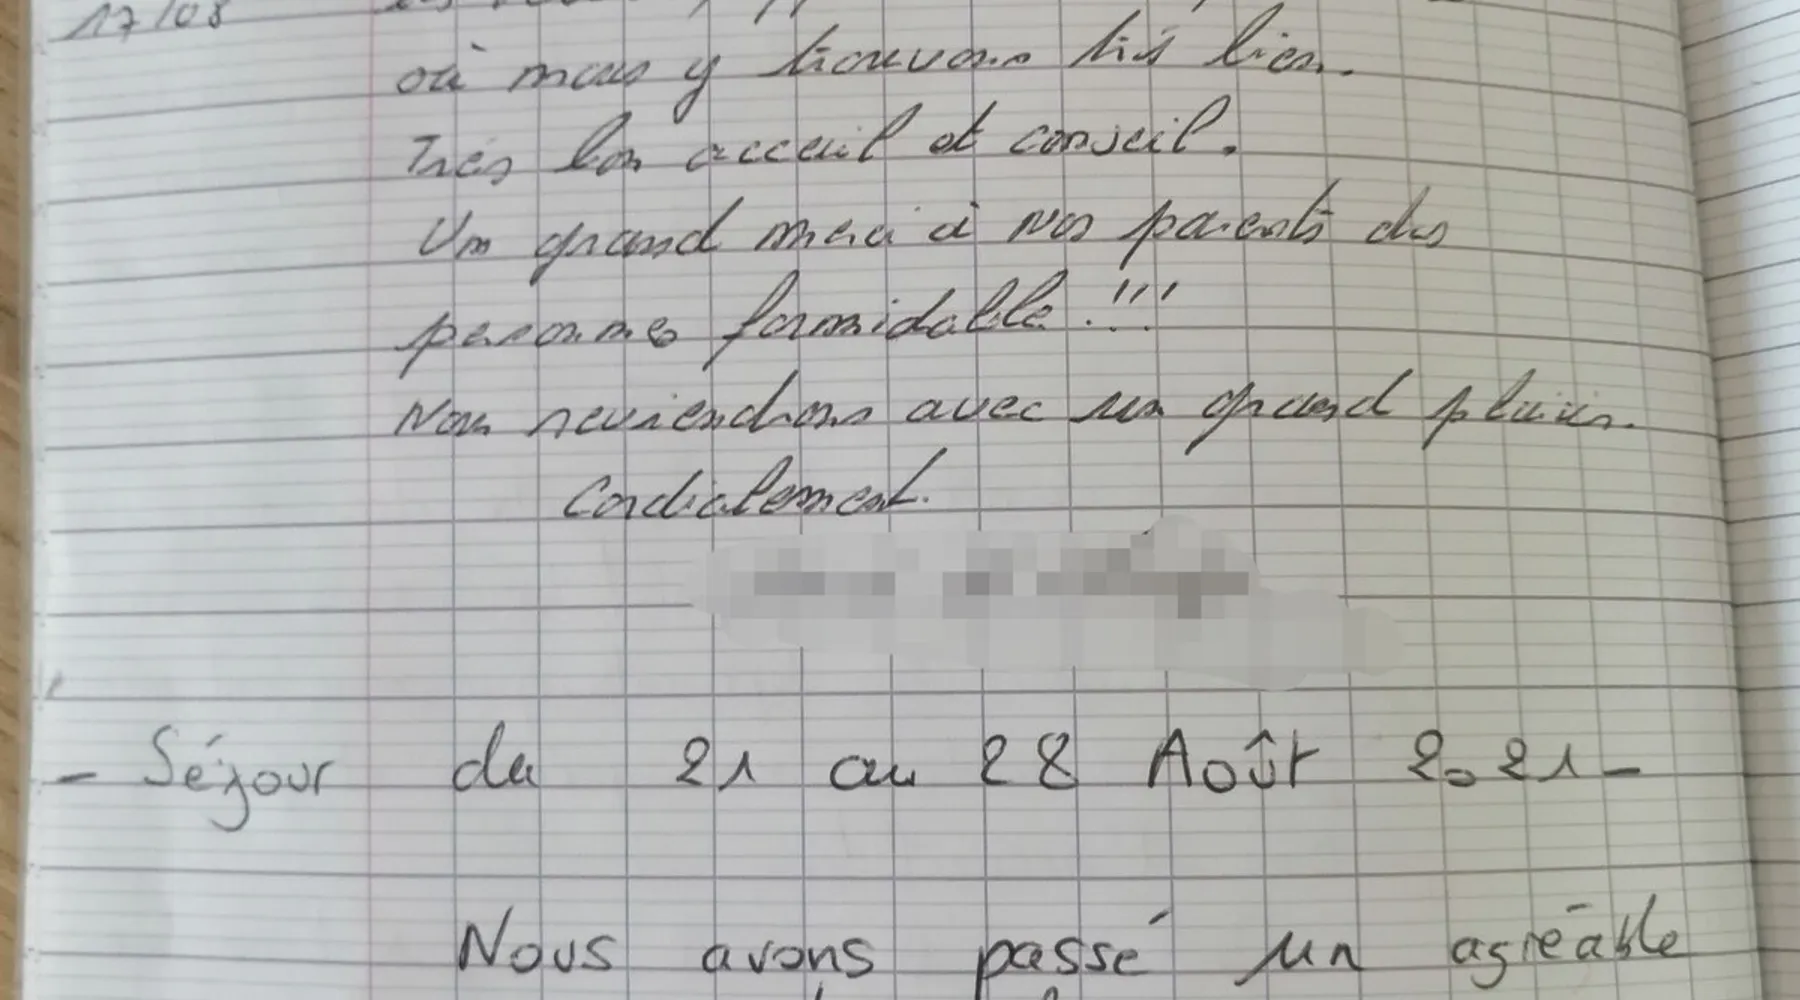 17/08
où nous y trouvons très bien.
Très bon acceuil et conseil.
Un grand merci à vos parents des
personnes formidable.!!!
Nous reviendrons avec un grand plaisir.
Cordialement.
- Séjour du 21 au 28 Août 2021-
Nous avons passé un agréable